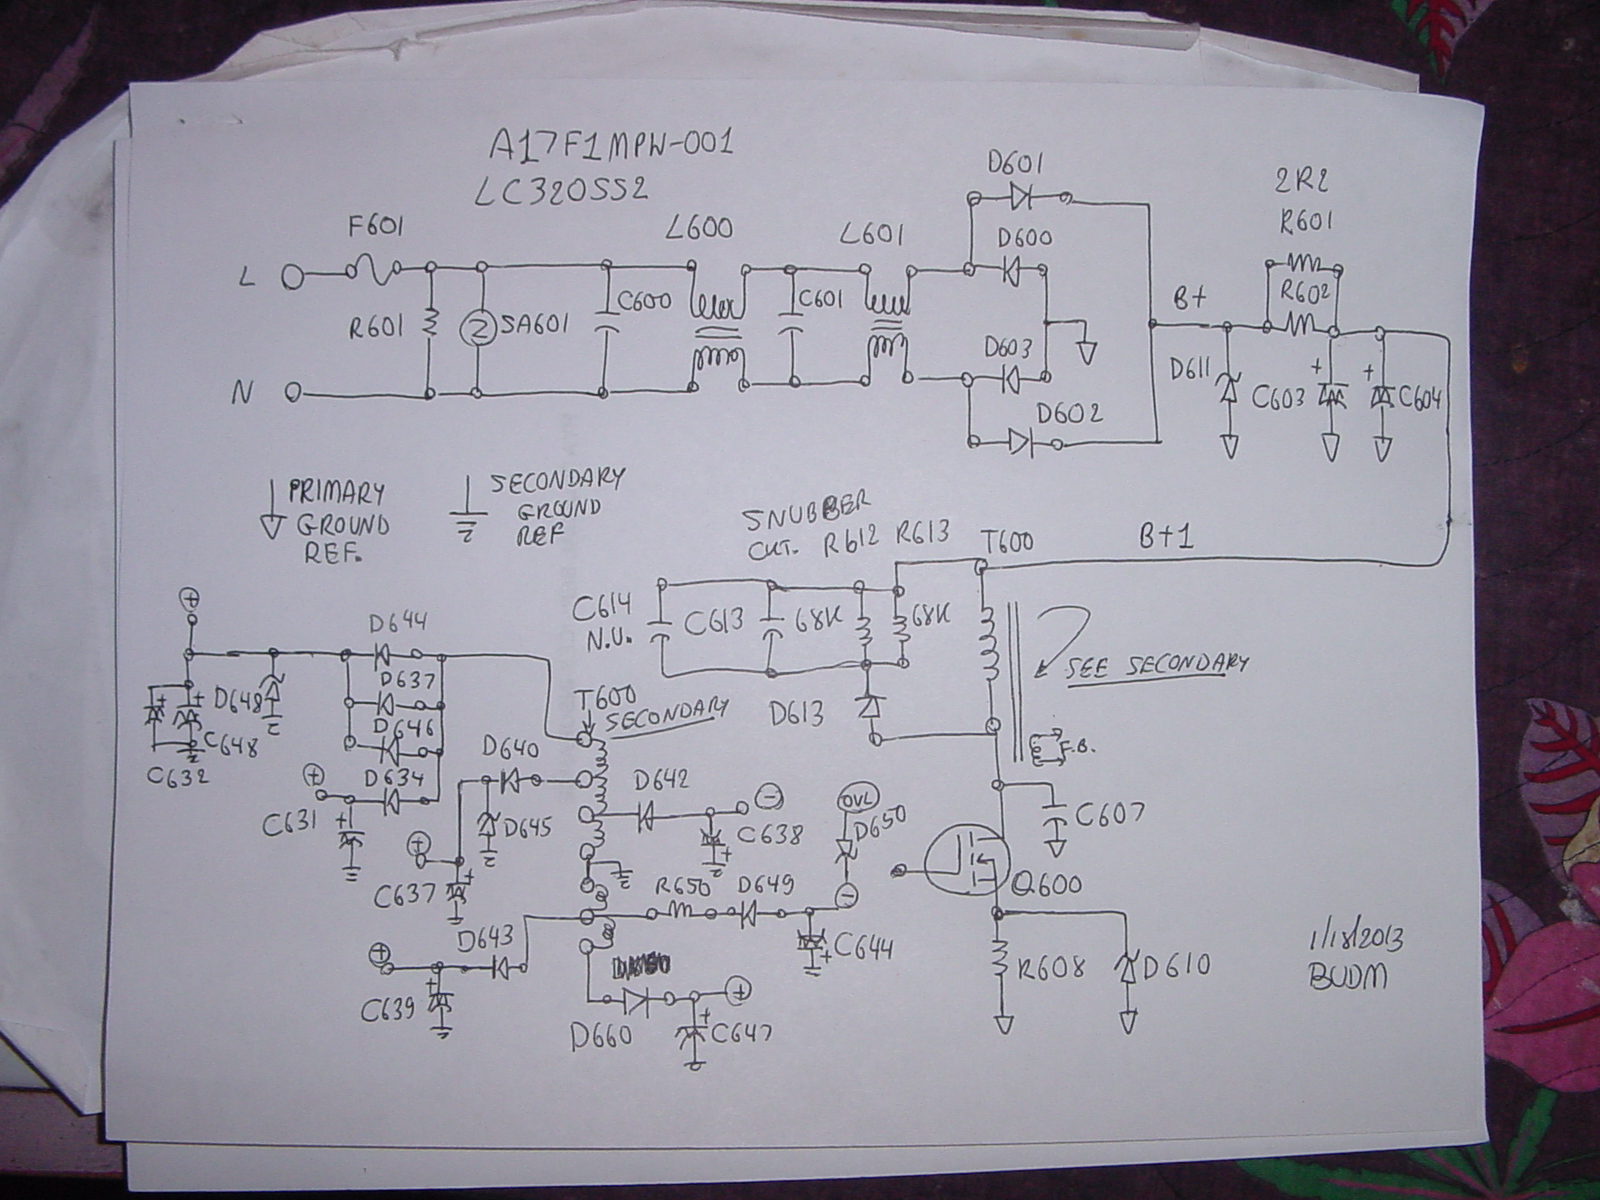 A17F1MPW-001
LC320SS2
F601
L600
L601
D601
D600
2R2
R601
R602
L
R601
SA601
C600
C601
B+
D603
D611
C603
+
+
C604
N
D602
PRIMARY
GROUND
REF.
SECONDARY
GROUND
REF
SNUBBER
CKT. R612 R613
T600
B+1
C614
N.U.
C613
68K
68K
SEE SECONDARY
+
D644
D637
D648
+
+
C648
C632
D646
D634
T600
SECONDARY
D613
F.B.
D640
D642
+
C631
+
D645
-
C638
+
OVL
D650
C607
+
C637
+
R650
D649
-
Q600
D643
+
C639
+
C644
+
R608
D610
D660
+
+
C647
1/18/2013
BUDM